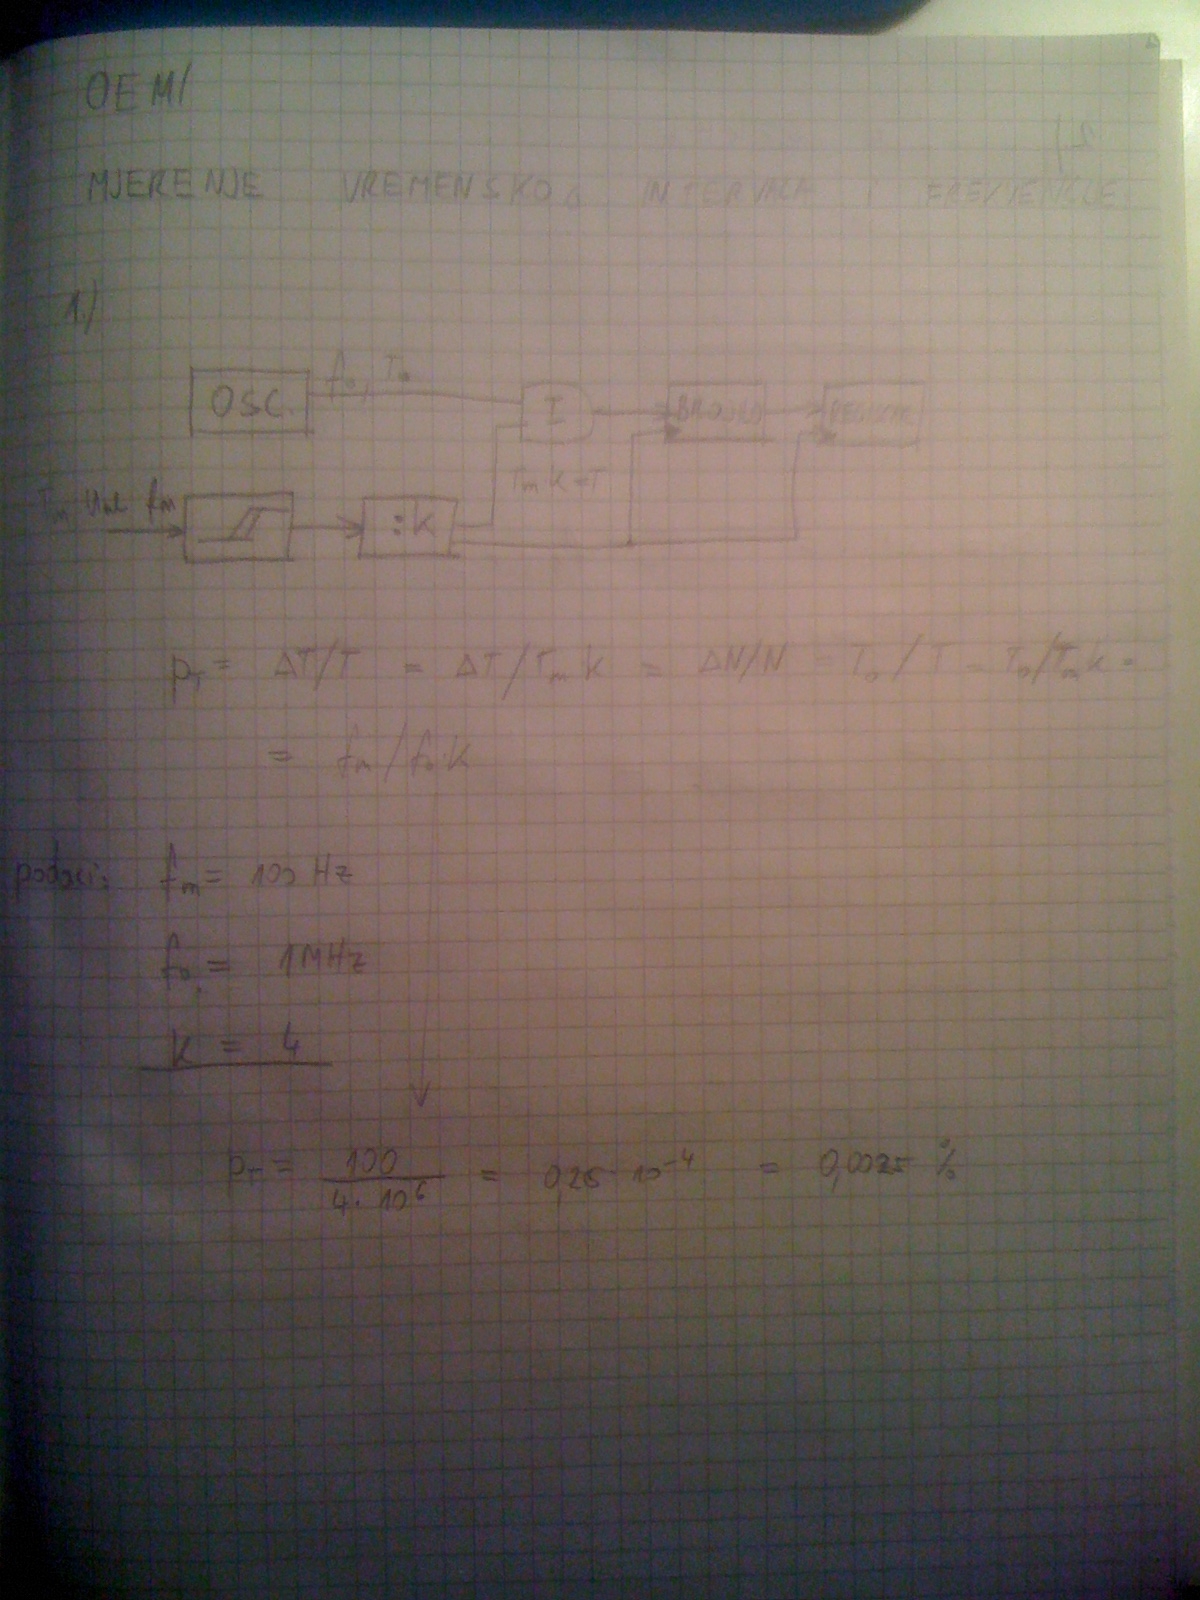 OEMI
MJERENJE VREMENSKOG INTERVALA I FREKVENCIJE
1.)
OSC. f₀, T₀ I BROJILO REGISTAR
Tₘ K = T
Tₘ Uul fₘ :K
p_T = ΔT/T = ΔT/Tₘ K = ΔN/N = T₀/T = T₀/Tₘ K =
= fₘ/f₀ K
podaci: fₘ = 100 Hz
f₀ = 1MHz
K = 4
p_T = 100 / 4·10⁶ = 0,25·10⁻⁴ = 0,0025 %